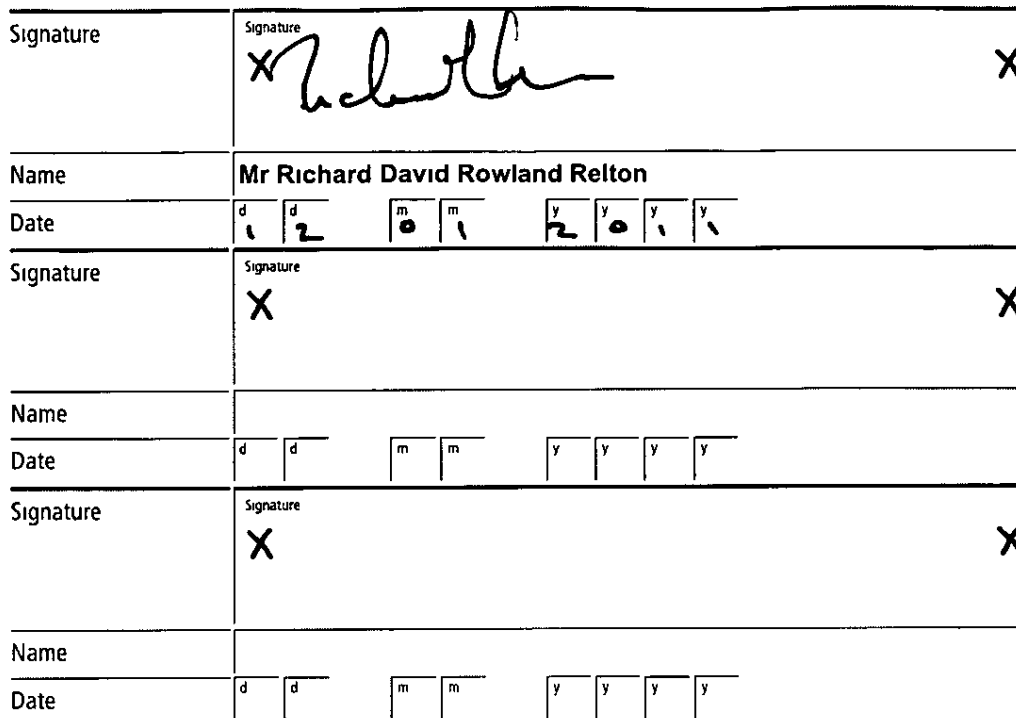 Signature Signature
X X
Name Mr Richard David Rowland Relton
Date d 1 d 2 m 0 m 1 y 2 y 0 y 1 y 1
Signature Signature
X X
Name
Date d d m m y y y y
Signature Signature
X X
Name
Date d d m m y y y y